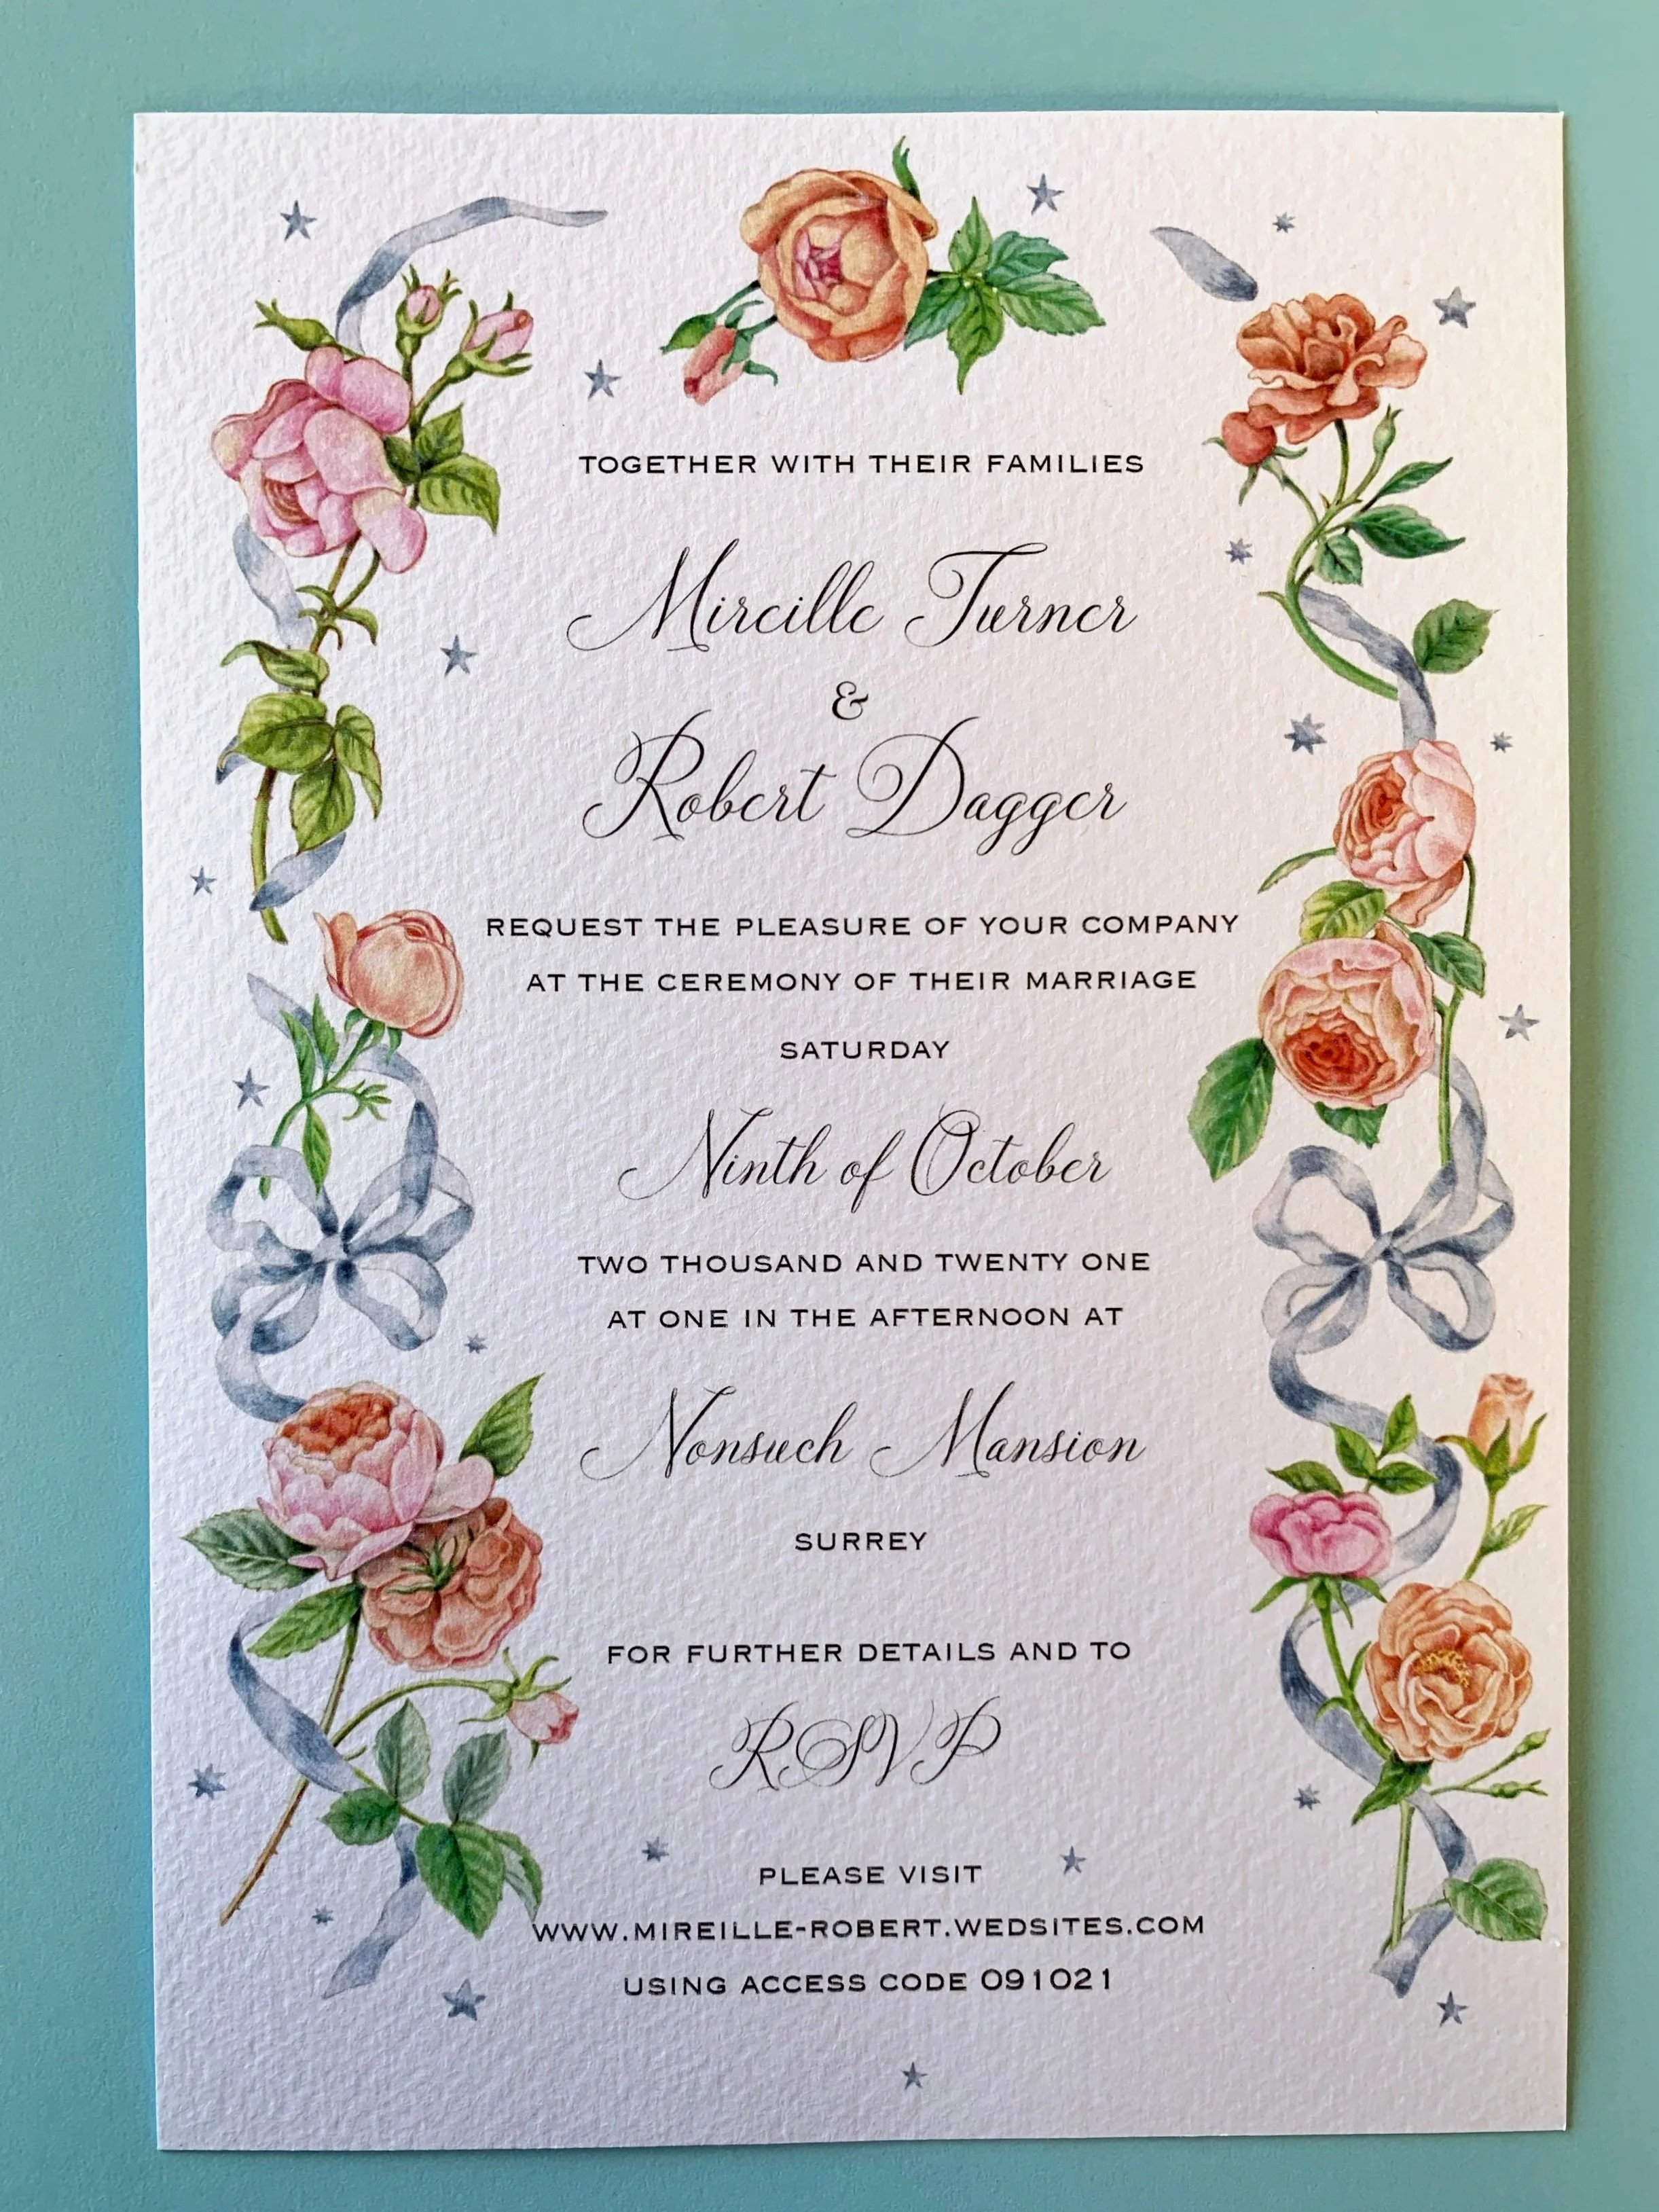 TOGETHER WITH THEIR FAMILIES
Mireille Turner
&
Robert Dagger
REQUEST THE PLEASURE OF YOUR COMPANY
AT THE CEREMONY OF THEIR MARRIAGE
SATURDAY
Ninth of October
TWO THOUSAND AND TWENTY ONE
AT ONE IN THE AFTERNOON AT
Nonsuch Mansion
SURREY
FOR FURTHER DETAILS AND TO
RSVP
PLEASE VISIT
WWW.MIREILLE-ROBERT.WEDSITES.COM
USING ACCESS CODE 091021